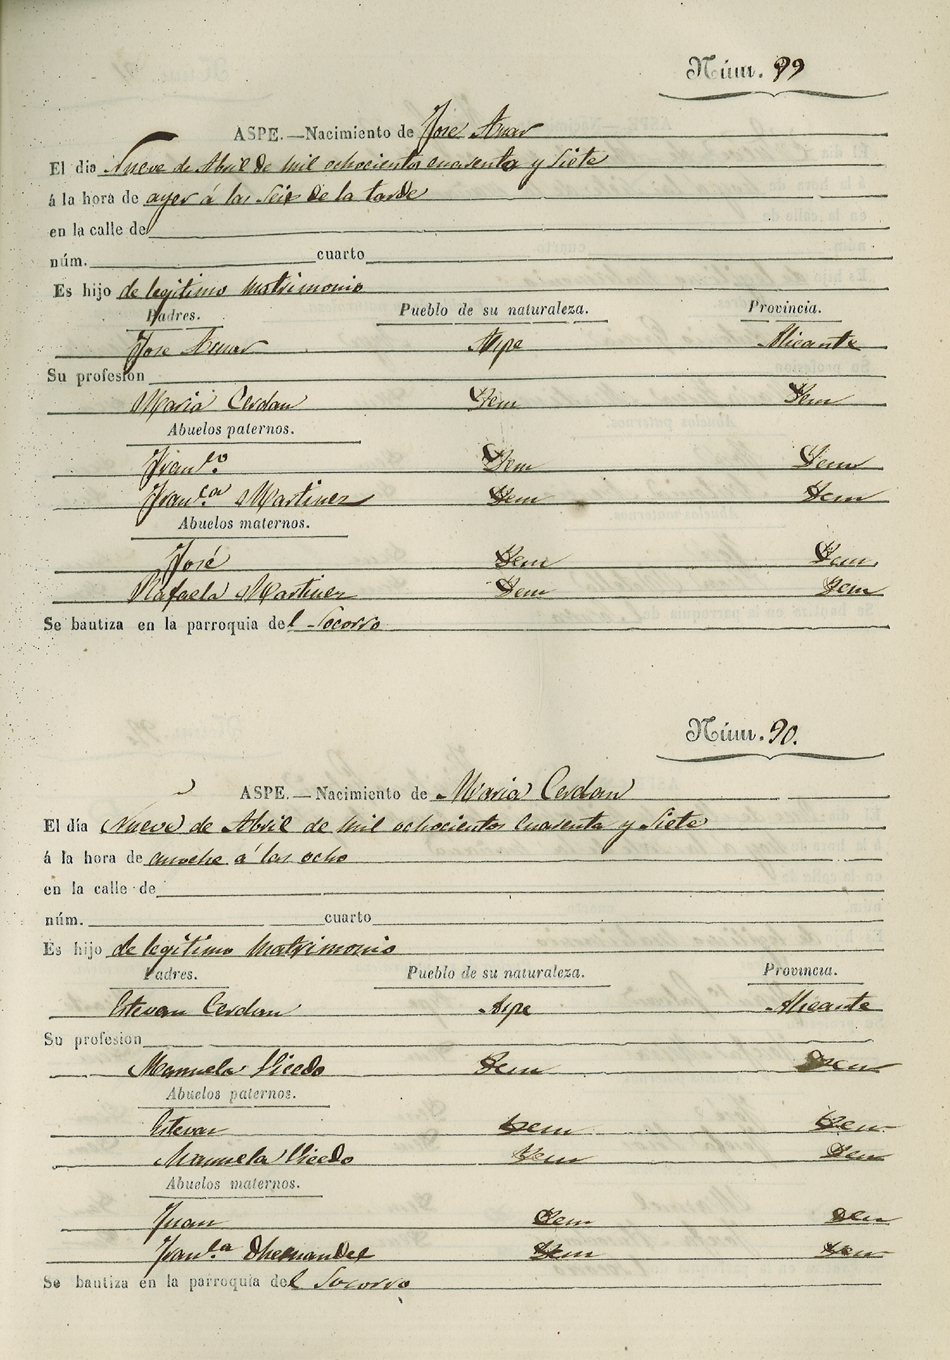 Núm. 99
ASPE.—Nacimiento de Jose Asnar
El dia Nueve de Abril de mil ochocientos cuarenta y Siete
á la hora de ayer á las Seis de la tarde
en la calle de
núm. cuarto
Es hijo de legitimo Matrimonio
Padres. Pueblo de su naturaleza. Provincia.
Jose Asnar Aspe Alicante
Su profesion
Maria Cerdan Ydem Ydem
Abuelos paternos.
Fran.co Ydem Ydem
Fran.ca Martinez Ydem Ydem
Abuelos maternos.
José Ydem Ydem
Rafaela Martinez Ydem Ydem
Se bautiza en la parroquia del Socorro
Núm. 90.
ASPE.—Nacimiento de Maria Cerdan
El día Nueve de Abril de mil ochocientos Cuarenta y Siete
á la hora de anoche á las ocho
en la calle de
núm. cuarto
Es hijo de legitimo Matrimonio
Padres. Pueblo de su naturaleza. Provincia.
Estevan Cerdan Aspe Alicante
Su profesion
Manuela Vicedo Ydem Ydem
Abuelos paternos.
Estevan Ydem Ydem
Manuela Vicedo Ydem Ydem
Abuelos maternos.
Juan Ydem Ydem
Fran.ca Dhernandez Ydem Ydem
Se bautiza en la parroquia del Socorro